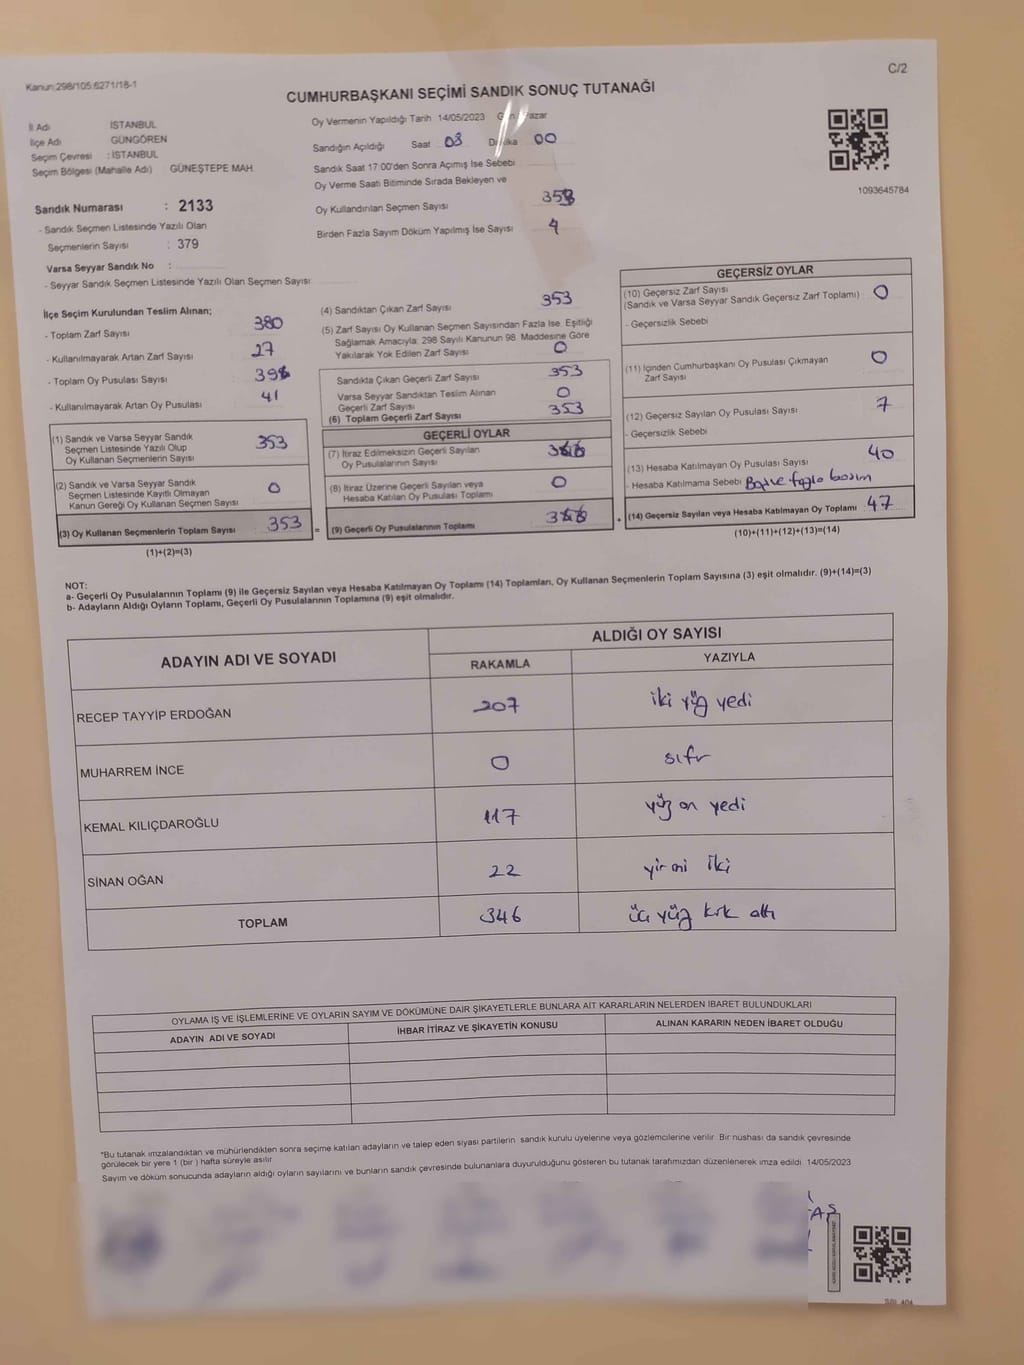 Kanun:298/105.6271/18-1
C/2
CUMHURBAŞKANI SEÇİMİ SANDIK SONUÇ TUTANAĞI
İl Adı İSTANBUL
İlçe Adı GÜNGÖREN
Seçim Çevresi : İSTANBUL
Seçim Bölgesi (Mahalle Adı) GÜNEŞTEPE MAH.
Sandık Numarası : 2133
- Sandık Seçmen Listesinde Yazılı Olan
Seçmenlerin Sayısı : 379
Varsa Seyyar Sandık No :
- Seyyar Sandık Seçmen Listesinde Yazılı Olan Seçmen Sayısı:
Oy Vermenin Yapıldığı Tarih 14/05/2023 Pazar
Sandığın Açıldığı Saat 08 00
Sandık Saat 17:00'den Sonra Açımış İse Sebebi
Oy Verme Saati Bitiminde Sırada Bekleyen ve
Oy Kullandırılan Seçmen Sayısı
Birden Fazla Sayım Döküm Yapılmış İse Sayısı 4
1093645784
İlçe Seçim Kurulundan Teslim Alınan;
- Toplam Zarf Sayısı 380
- Kullanılmayarak Artan Zarf Sayısı 27
- Toplam Oy Pusulası Sayısı
- Kullanılmayarak Artan Oy Pusulası 41
(1) Sandık ve Varsa Seyyar Sandık
Seçmen Listesinde Yazılı Olup
Oy Kullanan Seçmenlerin Sayısı 353
(2) Sandık ve Varsa Seyyar Sandık
Seçmen Listesinde Kayıtlı Olmayan
Kanun Gereği Oy Kullanan Seçmen Sayısı 0
(3) Oy Kullanan Seçmenlerin Toplam Sayısı 353
(1)+(2)=(3)
(4) Sandıktan Çıkan Zarf Sayısı 353
(5) Zarf Sayısı Oy Kullanan Seçmen Sayısından Fazla İse, Eşitliği
Sağlamak Amacıyla: 298 Sayılı Kanunun 98. Maddesine Göre
Yakılarak Yok Edilen Zarf Sayısı 0
Sandıkta Çıkan Geçerli Zarf Sayısı 353
Varsa Seyyar Sandıktan Teslim Alınan
Geçerli Zarf Sayısı 0
(6) Toplam Geçerli Zarf Sayısı 353
GEÇERLİ OYLAR
(7) İtiraz Edilmeksizin Geçerli Sayılan
Oy Pusulalarının Sayısı
(8) İtiraz Üzerine Geçerli Sayılan veya
Hesaba Katılan Oy Pusulası Toplamı 0
= (9) Geçerli Oy Pusulalarının Toplamı
GEÇERSİZ OYLAR
(10) Geçersiz Zarf Sayısı 0
(Sandık ve Varsa Seyyar Sandık Geçersiz Zarf Toplamı)
- Geçersizlik Sebebi
(11) İçinden Cumhurbaşkanı Oy Pusulası Çıkmayan 0
Zarf Sayısı
(12) Geçersiz Sayılan Oy Pusulası Sayısı 7
- Geçersizlik Sebebi
(13) Hesaba Katılmayan Oy Pusulası Sayısı 40
- Hesaba Katılmama Sebebi fazla basım
+ (14) Geçersiz Sayılan veya Hesaba Katılmayan Oy Toplamı 47
(10)+(11)+(12)+(13)=(14)
NOT:
a- Geçerli Oy Pusulalarının Toplamı (9) ile Geçersiz Sayılan veya Hesaba Katılmayan Oy Toplamı (14) Toplamları, Oy Kullanan Seçmenlerin Toplam Sayısına (3) eşit olmalıdır. (9)+(14)=(3)
b- Adayların Aldığı Oyların Toplamı, Geçerli Oy Pusulalarının Toplamına (9) eşit olmalıdır.
ADAYIN ADI VE SOYADI
ALDIĞI OY SAYISI
RAKAMLA YAZIYLA
RECEP TAYYİP ERDOĞAN 207 iki yüz yedi
MUHARREM İNCE 0 sıfır
KEMAL KILIÇDAROĞLU 117 yüz on yedi
SİNAN OĞAN 22 yirmi iki
TOPLAM 346 üç yüz kırk altı
OYLAMA İŞ VE İŞLEMLERİNE VE OYLARIN SAYIM VE DÖKÜMÜNE DAİR ŞİKAYETLERLE BUNLARA AİT KARARLARIN NELERDEN İBARET BULUNDUKLARI
ADAYIN ADI VE SOYADI İHBAR İTİRAZ VE ŞİKAYETİN KONUSU ALINAN KARARIN NEDEN İBARET OLDUĞU
*Bu tutanak imzalandıktan ve mühürlendikten sonra seçime katılan adayların ve talep eden siyasi partilerin sandık kurulu üyelerine veya gözlemcilerine verilir. Bir nüshası da sandık çevresinde
görülecek bir yere 1 (bir ) hafta süreyle asılır
Sayım ve döküm sonucunda adayların aldığı oyların sayılarını ve bunların sandık çevresinde bulunanlara duyurulduğunu gösteren bu tutanak tarafımızdan düzenlenerek imza edildi. 14/05/2023